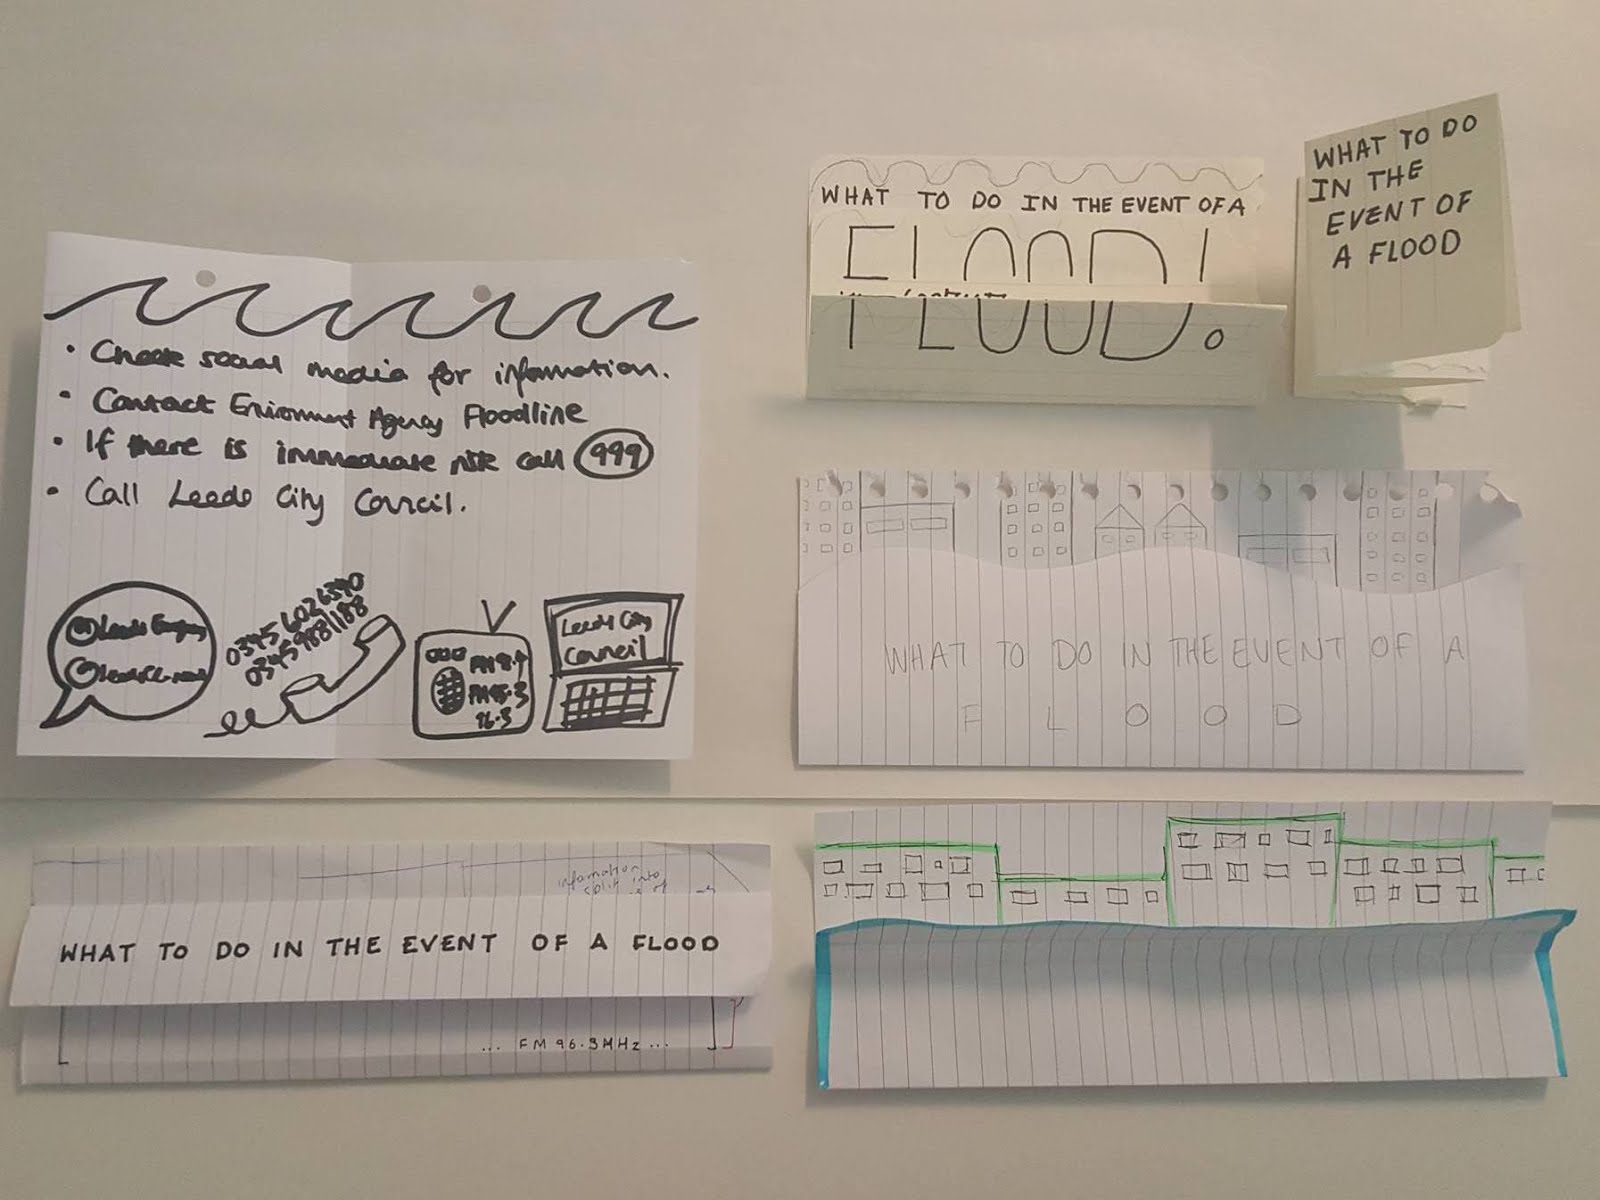 • Check social media for information.
• Contact Environment Agency Floodline
• If there is immediate risk call 999
• Call Leeds City Council.
0345 6026340
0345 9881188
Leeds City
Council
96.3
WHAT TO DO IN THE EVENT OF A
FLOOD!
WHAT TO DO
IN THE
EVENT OF
A FLOOD
WHAT TO DO IN THE EVENT OF A
FLOOD
WHAT TO DO IN THE EVENT OF A FLOOD
... FM 96.3MHz ...